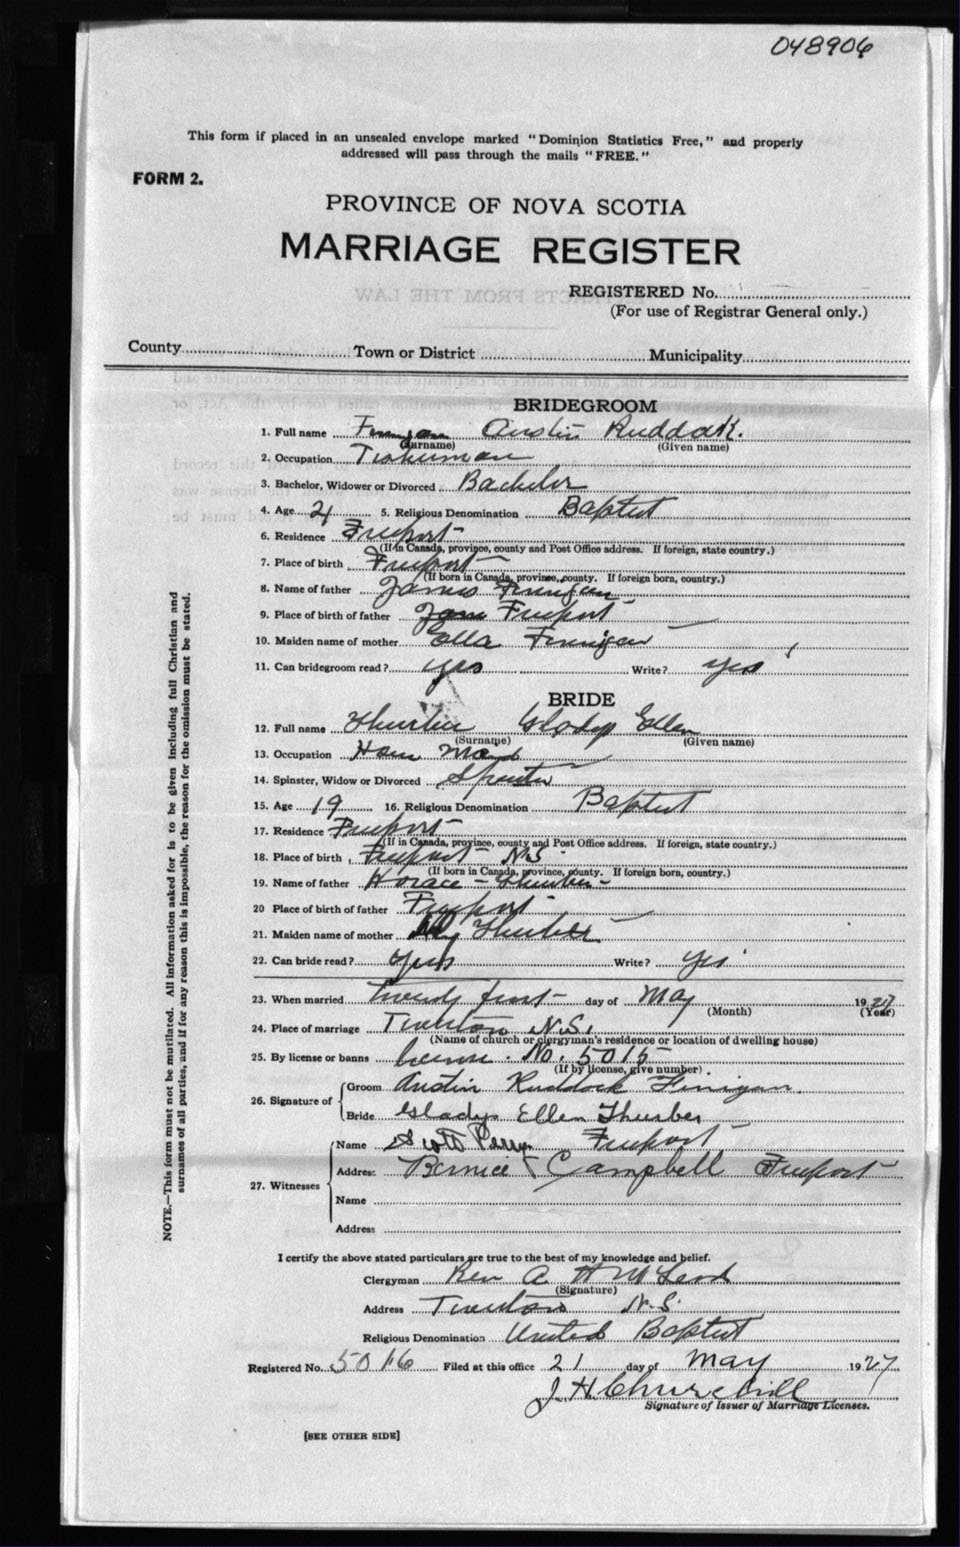 048906
This form if placed in an unsealed envelope marked "Dominion Statistics Free," and properly
addressed will pass through the mails "FREE."
FORM 2.
PROVINCE OF NOVA SCOTIA
MARRIAGE REGISTER
REGISTERED No.
(For use of Registrar General only.)
County Town or District Municipality
BRIDEGROOM
1. Full name Finigan Austin Ruddock.
(Surname) (Given name)
2. Occupation Fisherman
3. Bachelor, Widower or Divorced Bachelor
4. Age 21 5. Religious Denomination Baptist
6. Residence Freeport
(If in Canada, province, county and Post Office address. If foreign, state country.)
7. Place of birth Freeport
(If born in Canada, province, county. If foreign born, country.)
8. Name of father James Finnigan
9. Place of birth of father Freeport
10. Maiden name of mother Ella Finnigan
11. Can bridegroom read? yes Write? yes
BRIDE
12. Full name Thurber Gladys Ellen
(Surname) (Given name)
13. Occupation House Maid
14. Spinster, Widow or Divorced Spinster
15. Age 19 16. Religious Denomination Baptist
17. Residence Freeport
(If in Canada, province, county and Post Office address. If foreign, state country.)
18. Place of birth Freeport N.S.
(If born in Canada, province, county. If foreign born, country.)
19. Name of father Horace Thurber
20 Place of birth of father Freeport
21. Maiden name of mother Thurber
22. Can bride read? yes Write? yes
23. When married twenty first day of May 1927
(Month) (Year)
24. Place of marriage Tiverton N.S.
(Name of church or clergyman's residence or location of dwelling house)
25. By license or banns license. No. 5015
(If by license, give number)
26. Signature of Groom Austin Ruddock Finigan
Bride Gladys Ellen Thurber
27. Witnesses Name Scott Perry Freeport
Address Bernice Campbell Freeport
Name
Address
I certify the above stated particulars are true to the best of my knowledge and belief.
Clergyman Rev A H McLeod
(Signature)
Address Tiverton N.S.
Religious Denomination United Baptist
Registered No. 5016 Filed at this office 21 day of May 1927
J. H. Churchill
Signature of Issuer of Marriage Licenses.
[SEE OTHER SIDE]
NOTE.—This form must not be mutilated. All information asked for is to be given including full Christian and
surnames of all parties, and if for any reason this is impossible, the reason for the omission must be stated.